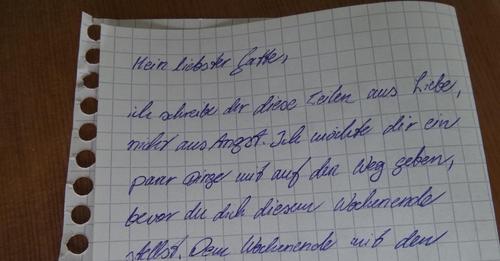 Mein liebster Gatte,
ich schreibe dir diese Zeilen aus Liebe,
nicht aus Angst. Ich möchte dir ein
paar Dinge mit auf den Weg geben,
bevor du dich diesem Wochenende
stellst. Dem Wochenende mit den